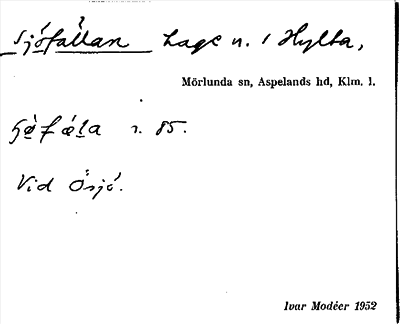 Sjöfallan hage n. i Hylta,
Mörlunda sn, Aspelands hd, Klm. l.
r. 85.
Vid Ösjö.
Ivar Modéer 1952